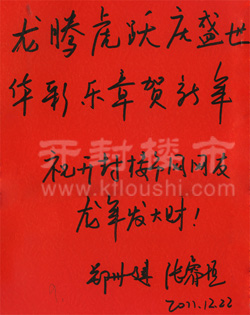 龙腾虎跃庆盛世
华彩乐章贺新年
开封楼市
www.kfloushi.com
祝开封楼市网网友
龙年发大财!
郑州建 张睿恒
2011.12.22